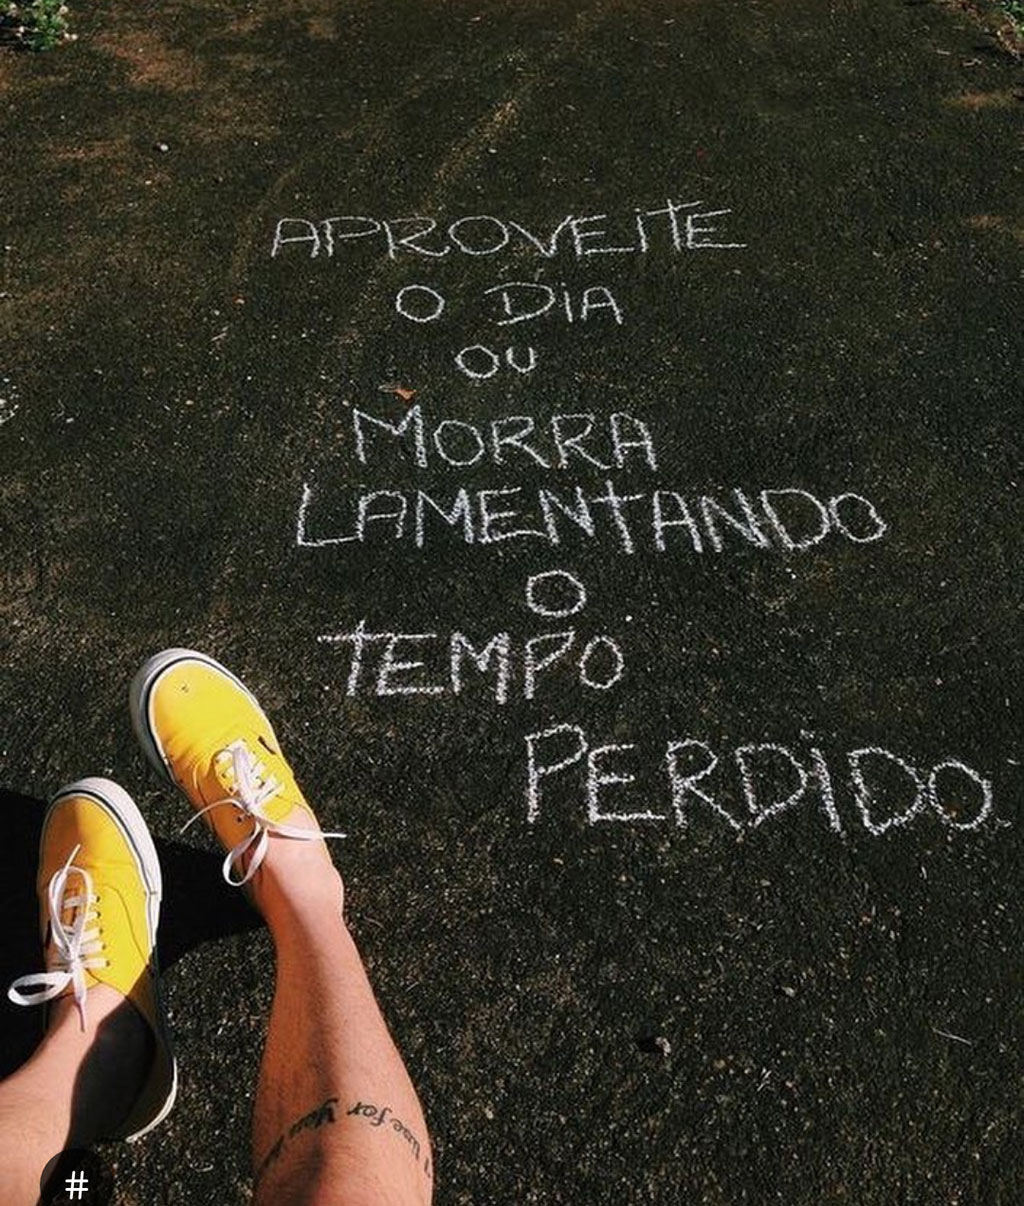 APROVEITE
O DIA
OU
MORRA
LAMENTANDO
O
TEMPO
PERDIDO.
I live for You
#